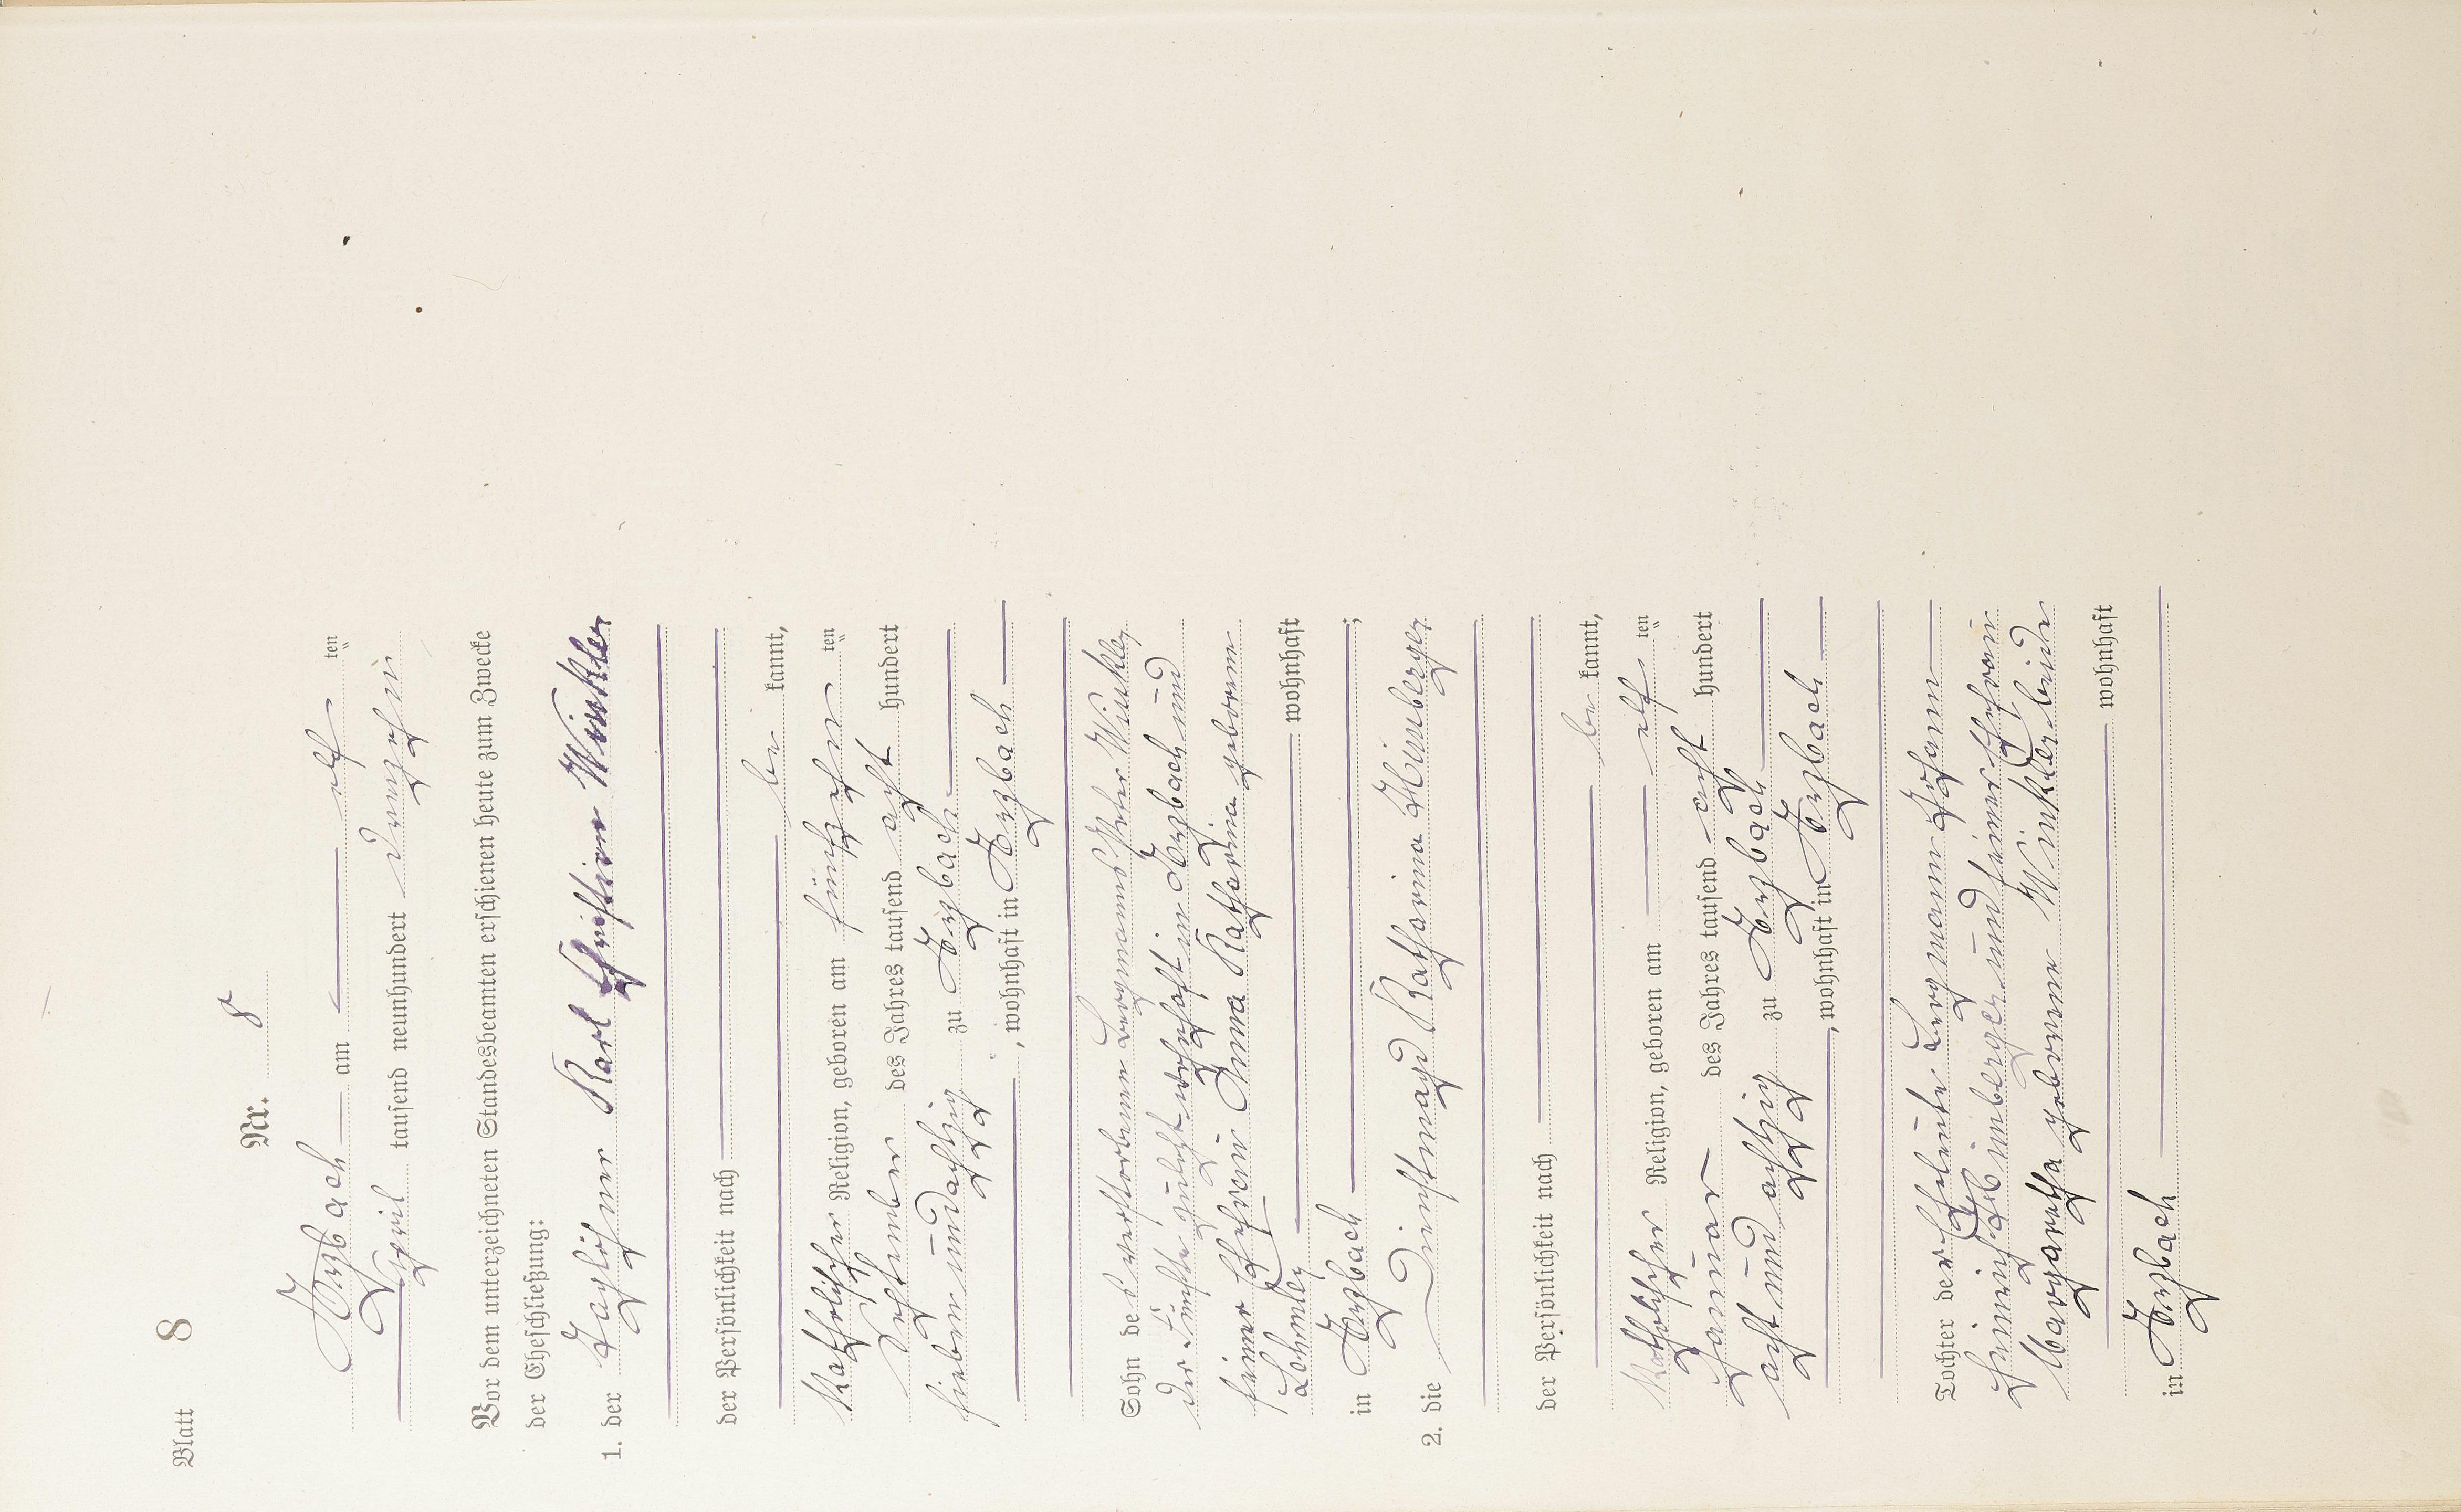 Blatt 8
Nr. 8
Torzbach am elf ten
April tausend neunhundert dreizehn
Vor dem unterzeichneten Standesbeamten erschienen heute zum Zwecke
der Eheschließung:
1. der Taglöhner Karl Christian Winkler
der Persönlichkeit nach
be kannt,
katholischer Religion, geboren am fünfzehnten
September des Jahres tausend acht hundert
sieben und achtzig zu
, wohnhaft in
Sohn des verstorbenen Bergmanns Peter Winkler
zuletzt wohnhaft in und
seiner Ehefrau Anna Katharina geborene
wohnhaft
in ;
2. die Dienstmagd Katharina Heimberger
der Persönlichkeit nach
be kannt,
katholischer Religion, geboren am elf ten
Januar des Jahres tausend acht hundert
acht und achtzig zu
, wohnhaft in
Tochter der Eheleute Bergmann Johann
Heinrich Heimberger und seiner Ehefrau
Margaretha geborene Winkler beide
wohnhaft
in